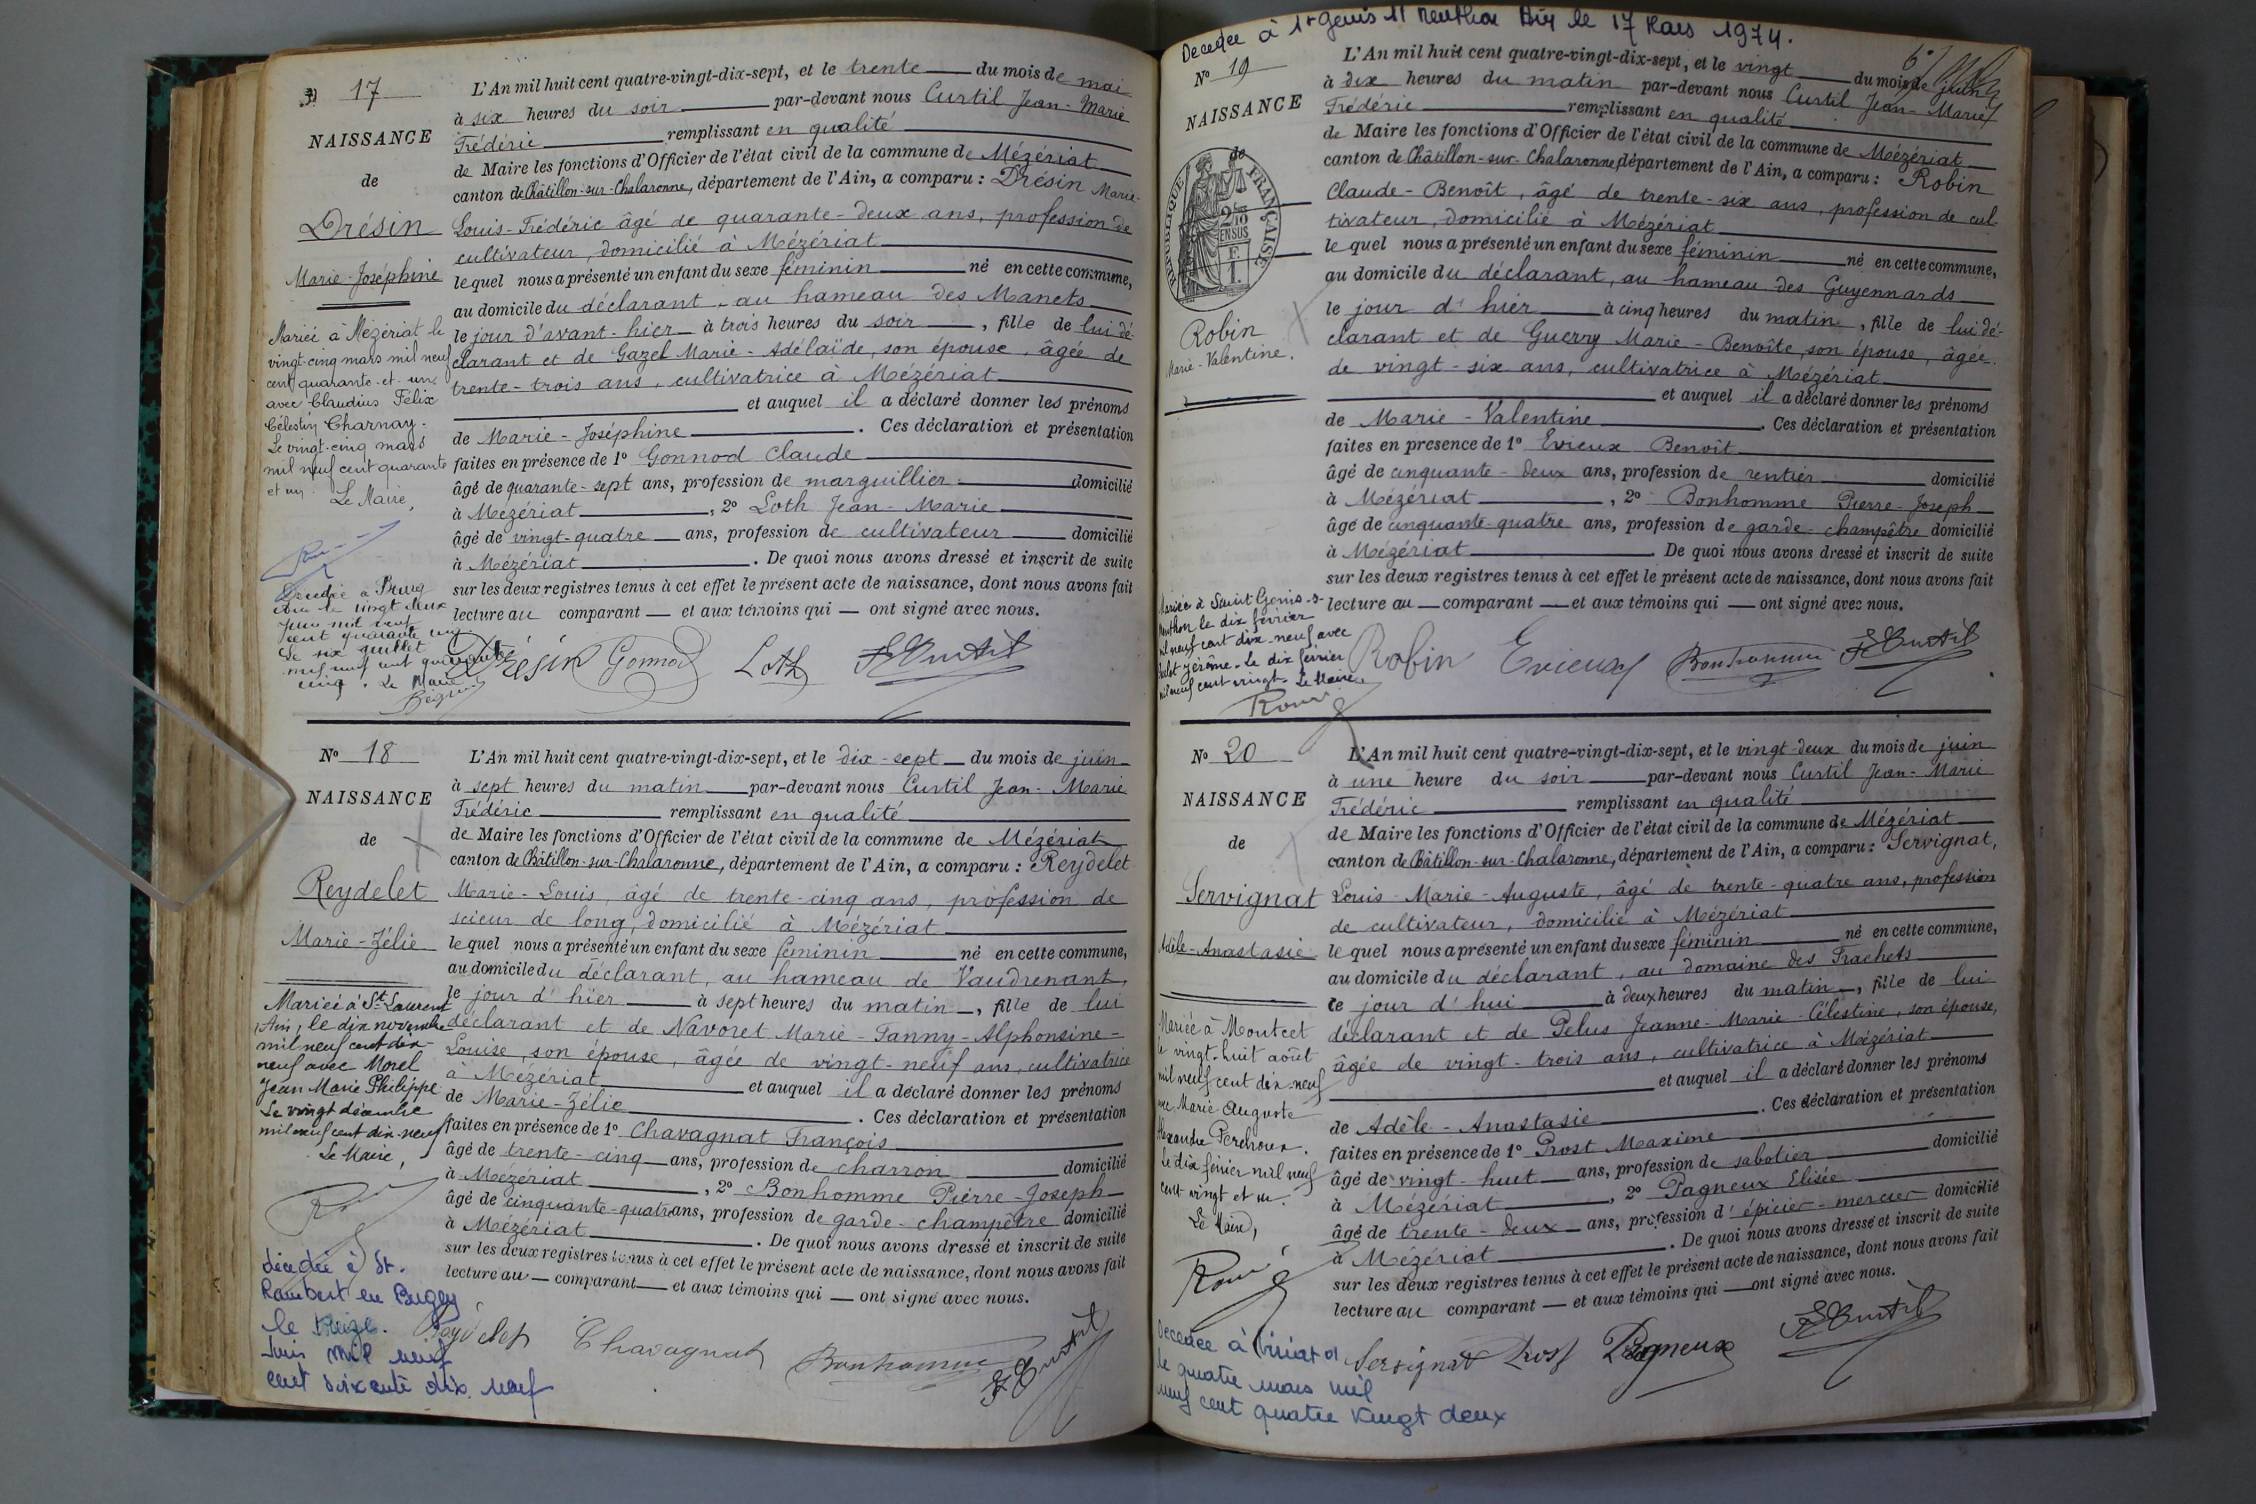 N° 17
NAISSANCE
de
Drésin
Marie-Joséphine
Mariée à Mézériat le
vingt-cinq mars mil neuf
cent quarante-et-un
avec Claudius Félix
Célestin Charnay.
Le vingt-cinq mars
mil neuf cent quarante
et un. Le Maire,
Décédée à Bourg
le vingt deux
juin mil neuf
cent quarante cinq
Le six juillet
mil neuf cent quarante
cinq. Le Maire
L'An mil huit cent quatre-vingt-dix-sept, et le trente du mois de mai
à six heures du soir par-devant nous Curtil Jean-Marie
Frédéric remplissant en qualité
de Maire les fonctions d'Officier de l'état civil de la commune de Mézériat
canton de Châtillon-sur-Chalaronne, département de l'Ain, a comparu : Drésin Marie-
Louis-Frédéric âgé de quarante-deux ans, profession de
cultivateur, domicilié à Mézériat
lequel nous a présenté un enfant du sexe féminin né en cette commune,
au domicile du déclarant, au hameau des Manets
le jour d'avant-hier à trois heures du soir, fille de lui dé-
clarant et de Gazel Marie-Adélaïde, son épouse, âgée de
trente-trois ans, cultivatrice à Mézériat
et auquel il a déclaré donner les prénoms
de Marie-Joséphine. Ces déclaration et présentation
faites en présence de 1° Gonnod Claude
âgé de quarante-sept ans, profession de marguillier domicilié
à Mézériat, 2° Loth Jean-Marie
âgé de vingt-quatre ans, profession de cultivateur domicilié
à Mézériat. De quoi nous avons dressé et inscrit de suite
sur les deux registres tenus à cet effet le présent acte de naissance, dont nous avons fait
lecture au comparant et aux témoins qui ont signé avec nous.
Drésin Gonnod Loth F Curtil
N° 18
NAISSANCE
de
Reydelet
Marie-Zélie
Mariée à St Laurent
Ain, le dix novembre
mil neuf cent dix-
neuf avec Morel
Jean Marie Philippe
Le vingt décembre
mil neuf cent dix-neuf
Le Maire,
décédée à St.
Rambert en Bugey
le treize.
Juin mil neuf
cent soixante dix neuf
L'An mil huit cent quatre-vingt-dix-sept, et le dix-sept du mois de juin
à sept heures du matin par-devant nous Curtil Jean-Marie
Frédéric remplissant en qualité
de Maire les fonctions d'Officier de l'état civil de la commune de Mézériat
canton de Châtillon-sur-Chalaronne, département de l'Ain, a comparu : Reydelet
Marie-Louis, âgé de trente-cinq ans, profession de
scieur de long, domicilié à Mézériat
lequel nous a présenté un enfant du sexe féminin né en cette commune,
au domicile du déclarant, au hameau de Vaudrenant,
le jour d'hier à sept heures du matin, fille de lui
déclarant et de Navoret Marie-Fanny-Alphonsine-
Louise, son épouse, âgée de vingt-neuf ans, cultivatrice
à Mézériat et auquel il a déclaré donner les prénoms
de Marie-Zélie. Ces déclaration et présentation
faites en présence de 1° Chavagnat François
âgé de trente-cinq ans, profession de charron domicilié
à Mézériat, 2° Bonhomme Pierre-Joseph
âgé de cinquante-quatre ans, profession de garde-champêtre domicilié
à Mézériat. De quoi nous avons dressé et inscrit de suite
sur les deux registres tenus à cet effet le présent acte de naissance, dont nous avons fait
lecture au comparant et aux témoins qui ont signé avec nous.
Reydelet Chavagnat Bonhomme F Curtil
Decedee à St Genis S/ Menthon Ain le 17 Mars 1974.
N° 19
NAISSANCE
de
RÉPUBLIQUE FRANÇAISE
2/10 EN SUS
F. 1.
Robin
Marie-Valentine.
Mariée à Saint Genis-s-
Menthon le dix février
mil neuf cent dix-neuf avec
Jérôme. Le dix février
mil neuf cent vingt. Le Maire,
L'An mil huit cent quatre-vingt-dix-sept, et le vingt du mois de juin
à dix heures du matin par-devant nous Curtil Jean-Marie
Frédéric remplissant en qualité
de Maire les fonctions d'Officier de l'état civil de la commune de Mézériat
canton de Châtillon-sur-Chalaronne, département de l'Ain, a comparu : Robin
Claude-Benoît, âgé de trente-six ans, profession de cul
tivateur, domicilié à Mézériat
lequel nous a présenté un enfant du sexe féminin né en cette commune,
au domicile du déclarant, au hameau des Guyennards
le jour d'hier à cinq heures du matin, fille de lui dé-
clarant et de Guerry Marie-Benoîte, son épouse, âgée
de vingt-six ans, cultivatrice à Mézériat
et auquel il a déclaré donner les prénoms
de Marie-Valentine. Ces déclaration et présentation
faites en présence de 1° Evieux Benoît
âgé de cinquante-deux ans, profession de rentier domicilié
à Mézériat, 2° Bonhomme Pierre-Joseph
âgé de cinquante-quatre ans, profession de garde-champêtre domicilié
à Mézériat. De quoi nous avons dressé et inscrit de suite
sur les deux registres tenus à cet effet le présent acte de naissance, dont nous avons fait
lecture au comparant et aux témoins qui ont signé avec nous.
Robin Evieux Bonhomme F Curtil
N° 20
NAISSANCE
de
Servignat
Adèle-Anastasie
Mariée à Montcet
le vingt-huit août
mil neuf cent dix-neuf
avec Marie Auguste
Alexandre Perchoux.
Le dix février mil neuf
cent vingt et un.
Le Maire,
Decedee à Viriat 01
le quatre mars mil
neuf cent quatre vingt deux
L'An mil huit cent quatre-vingt-dix-sept, et le vingt-deux du mois de juin
à une heure du soir par-devant nous Curtil Jean-Marie
Frédéric remplissant en qualité
de Maire les fonctions d'Officier de l'état civil de la commune de Mézériat
canton de Châtillon-sur-Chalaronne, département de l'Ain, a comparu : Servignat,
Louis-Marie-Auguste, âgé de trente-quatre ans, profession
de cultivateur, domicilié à Mézériat
lequel nous a présenté un enfant du sexe féminin né en cette commune,
au domicile du déclarant, au domaine des Trachets
ce jour d'hui à deux heures du matin, fille de lui
déclarant et de Pelus Jeanne-Marie-Célestine, son épouse,
âgée de vingt-trois ans, cultivatrice à Mézériat
et auquel il a déclaré donner les prénoms
de Adèle-Anastasie. Ces déclaration et présentation
faites en présence de 1° Prost Maxime
âgé de vingt-huit ans, profession de sabotier domicilié
à Mézériat, 2° Pagneux Elisée
âgé de trente-deux ans, profession d'épicier-mercier domicilié
à Mézériat. De quoi nous avons dressé et inscrit de suite
sur les deux registres tenus à cet effet le présent acte de naissance, dont nous avons fait
lecture au comparant et aux témoins qui ont signé avec nous.
Servignat Prost Pagneux F Curtil